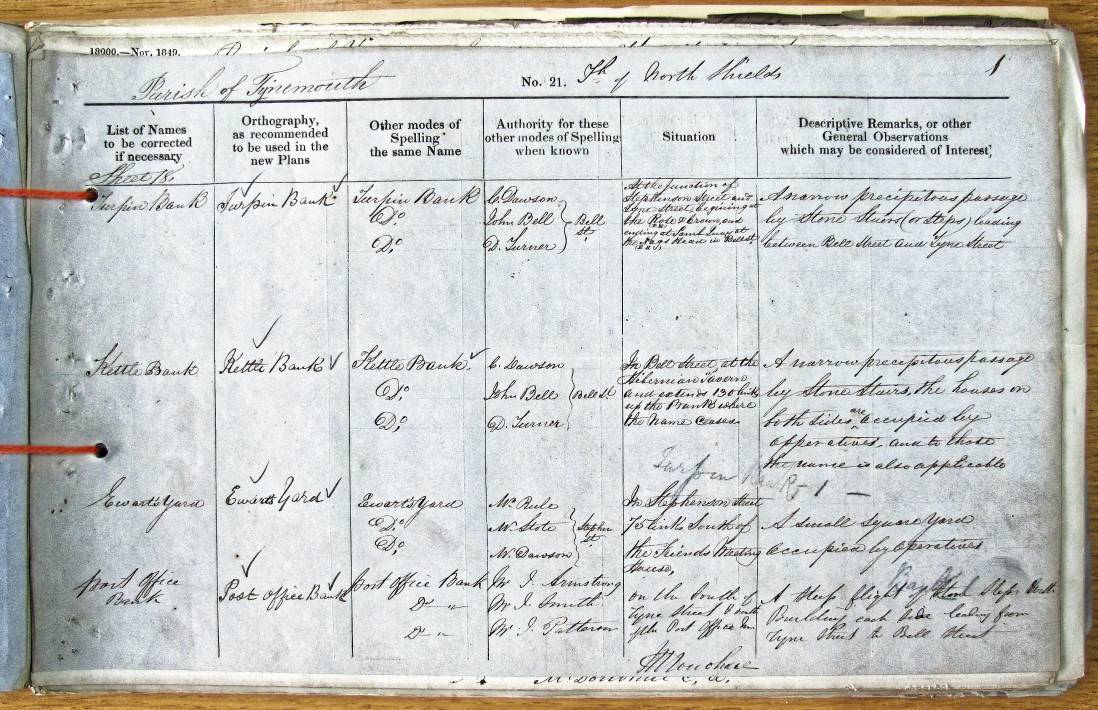 18900.—Nov. 1849.
Parish of Tynemouth
No. 21. Tp. of North Shields
1
List of Names
to be corrected
if necessary
Orthography,
as recommended
to be used in the
new Plans
Other modes of
Spelling
the same Name
Authority for these
other modes of Spelling
when known
Situation
Descriptive Remarks, or other
General Observations
which may be considered of Interest
Sheet 18
Turpin Bank
Turpin Bank
Turpin Bank
Do
Do
C. Dawson
John Bell
D. Turner
Bell
St.
At the junction of
Stephenson Street and
Tyne Street, begining at
the Rose & Crown, and
ending at Lamb Quay at
the Nags Head in Bell St
A narrow precipitous passage
by Stone Stairs (or Steps) leading
between Bell Street and Tyne Street
Kettle Bank
Kettle Bank
Kettle Bank
Do
Do
C. Dawson
John Bell
D. Turner
Bell St
In Bell Street, at the
Hibernian Tavern
and extends 130 links
up the Bank where
the name ceases
A narrow precipitous passage
by Stone Stairs, the houses on
both sides are occupied by
opperatives, and to those
the name is also applicable
Turpin Bank 1 —
Ewart's Yard
Ewarts Yard
Ewart's Yard
Do
Do
Mr Rule
Mr Stote
Mr Dawson
Stephen
St.
In Stephenson Street
75 links South of
the Friends Meeting
House,
A small square Yard
occupied by operatives
Post Office
Bank
Post Office Bank
Post Office Bank
Do "
Do "
Mr J. Armstrong
Mr J. Smith
Mr J. Patterson
on the South of
Tyne Street
Post Office
A steep flight of Stone Steps with
Building each side leading from
Tyne Street to Bell Street